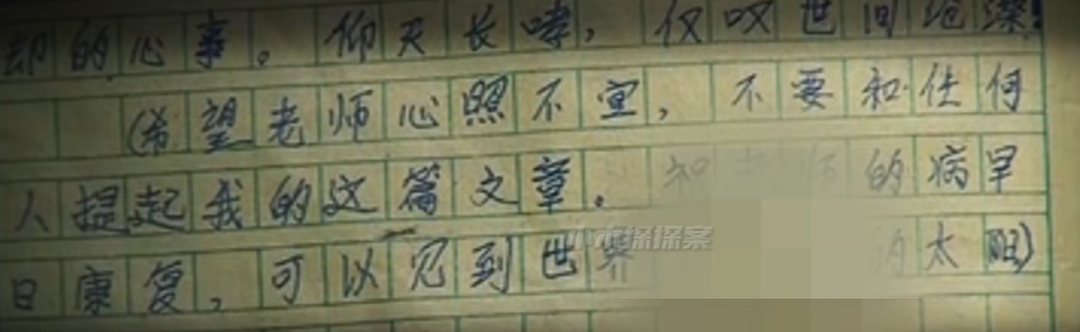 却的心事。仰天长啸，仅叹世间沧深!
(希望老师心照不宣，不要和任何
人提起我的这篇文章。 的病早
日康复，可以见到世界 的太阳)
小木探探案